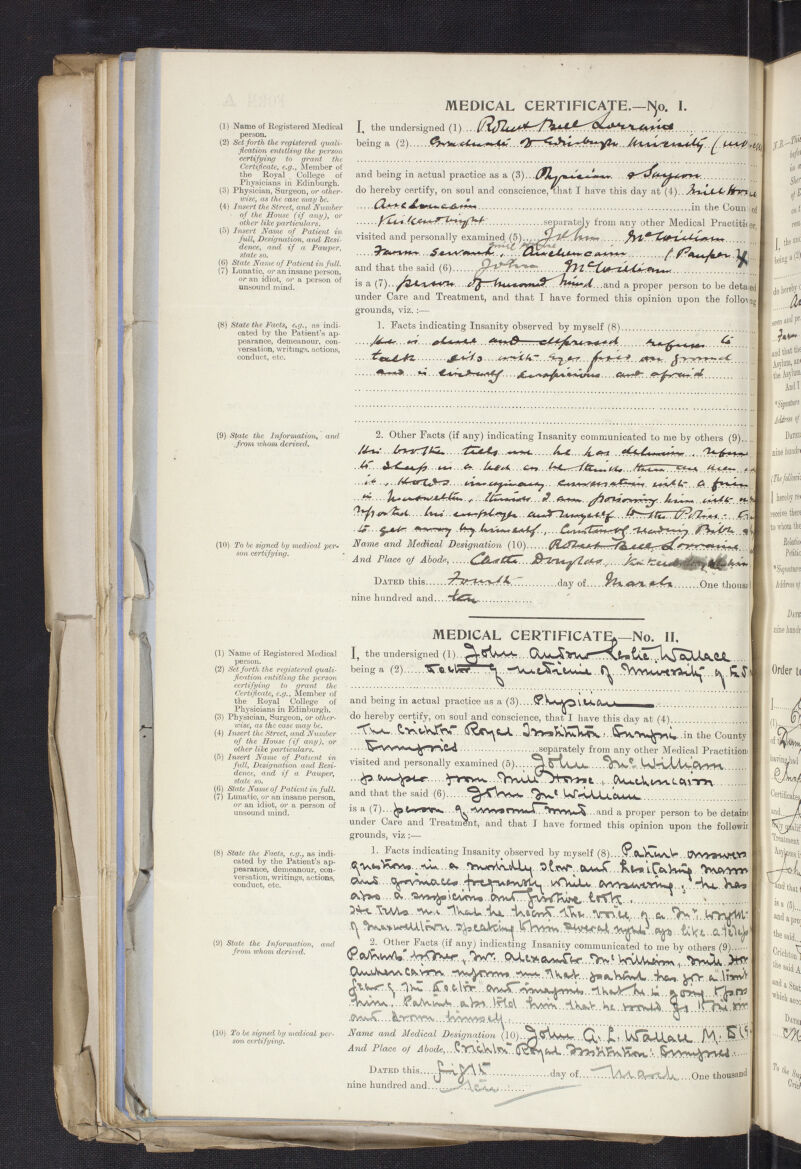 MEDICAL CERTIFICATE.—No. I.
(1) Name of Registered Medical person.
(2) Set forth the registered qualification entitling the person certifying to grant the Certificate, e.g., Member of the Royal College of Physicians in Edinburgh.
(3) Physician, Surgeon, or otherwise, as the case may be.
(4) Insert the Street, and Number of the House (if any), or other like particulars.
(5) Insert Name of Patient in full, Designation, and Residence, and if a Pauper, state so.
(6) State Name of Patient in full.
(7) Lunatic, or an insane person, or an idiot, or a person of unsound mind.
I, the undersigned (1) Robert Bell Lorraine
being a (2) Graduate of Edinburgh University
and being in actual practice as a (3) Physician & Surgeon
do hereby certify, on soul and conscience, that I have this day at (4) Mill House
Auchencairn in the Coun of
Kirkcudbright separately from any other Medical Practitioner
visited and personally examined (5) John McWilliam
Farm Servant, Mill House Auchencairn (Pauper)
and that the said (6) John McWilliam
is a (7) person of unsound mind and a proper person to be detained
under Care and Treatment, and that I have formed this opinion upon the following
grounds, viz. :—
(8) State the Facts, e.g., as indicated by the Patient's appearance, demeanour, conversation, writings, actions, conduct, etc.
1. Facts indicating Insanity observed by myself (8)
He is dull and depressed refuses to
talk sits with eyes fixed on ground
and is evidently suspicious and afraid
(9) State the Information, and from whom derived.
2. Other Facts (if any) indicating Insanity communicated to me by others (9)
His brother tells me he has delusions. refuses
to sleep in a bed as he thinks there are men
it, Holds imaginary conversation with a
in Maxwellton, thinks I am poisoning him with
reported his employer and myself to the Police.
to get away by himself, Constantly reading Bible
(10) To be signed by medical person certifying.
Name and Medical Designation (10) Robert Bell Lorraine
And Place of Abode, Castle Douglas,
DATED this Fourth day of March One thous
nine hundred and ten
MEDICAL CERTIFICATE,—No. II.
(1) Name of Registered Medical person.
(2) Set forth the registered qualification entitling the person certifying to grant the Certificate, e.g., Member of the Royal College of Physicians in Edinburgh.
(3) Physician, Surgeon, or otherwise, as the case may be.
(4) Insert the Street, and Number of the House (if any), or other like particulars.
(5) Insert Name of Patient in full, Designation, and Residence, and if a Pauper, state so.
(6) State Name of Patient in full.
(7) Lunatic, or an insane person, or an idiot, or a person of unsound mind.
I, the undersigned (1) John Andrew Leslie Wallace
being a (2) Doctor of Medicine of University of
and being in actual practice as a (3) Physician
do hereby certify, on soul and conscience, that I have this day at (4)
The Crichton Royal Institution Dumfries in the County
Dumfries separately from any other Medical Practition
visited and personally examined (5) John McWilliam
pauper from Mill House, Auchencairn
and that the said (6) John McWilliam
is a (7) person of unsound mind and a proper person to be detaine
under Care and Treatment, and that I have formed this opinion upon the followin
grounds, viz :—
(8) State the Facts, e.g., as indicated by the Patient's appearance, demeanour, conversation, writings, actions, conduct, etc.
1. Facts indicating Insanity observed by myself (8) Patient answers
questions in a morbidly slow and hesitating mann
and grimaces frequently while answering; he has
also a suspicious and furtive look.
He tells me that he heard the voice of a Mr Wright
of Maxwelltown speaking to him several nights ago like a
(9) State the Information, and from whom derived.
2. Other Facts (if any) indicating Insanity communicated to me by others (9)
Patient's brother, Mr. Alexander McWilliam, Mill Ho
Auchencairn informs me that patient has got a
fear of the doctor and imagines that he is going to
him. Patient also told him that he would go
and drown himself.
(10) To be signed by medical person certifying.
Name and Medical Designation (10) John A. L. Wallace M.D
And Place of Abode, Crichton Royal Institution: Dumfries:
DATED this eight day of March One thousand
nine hundred and ten